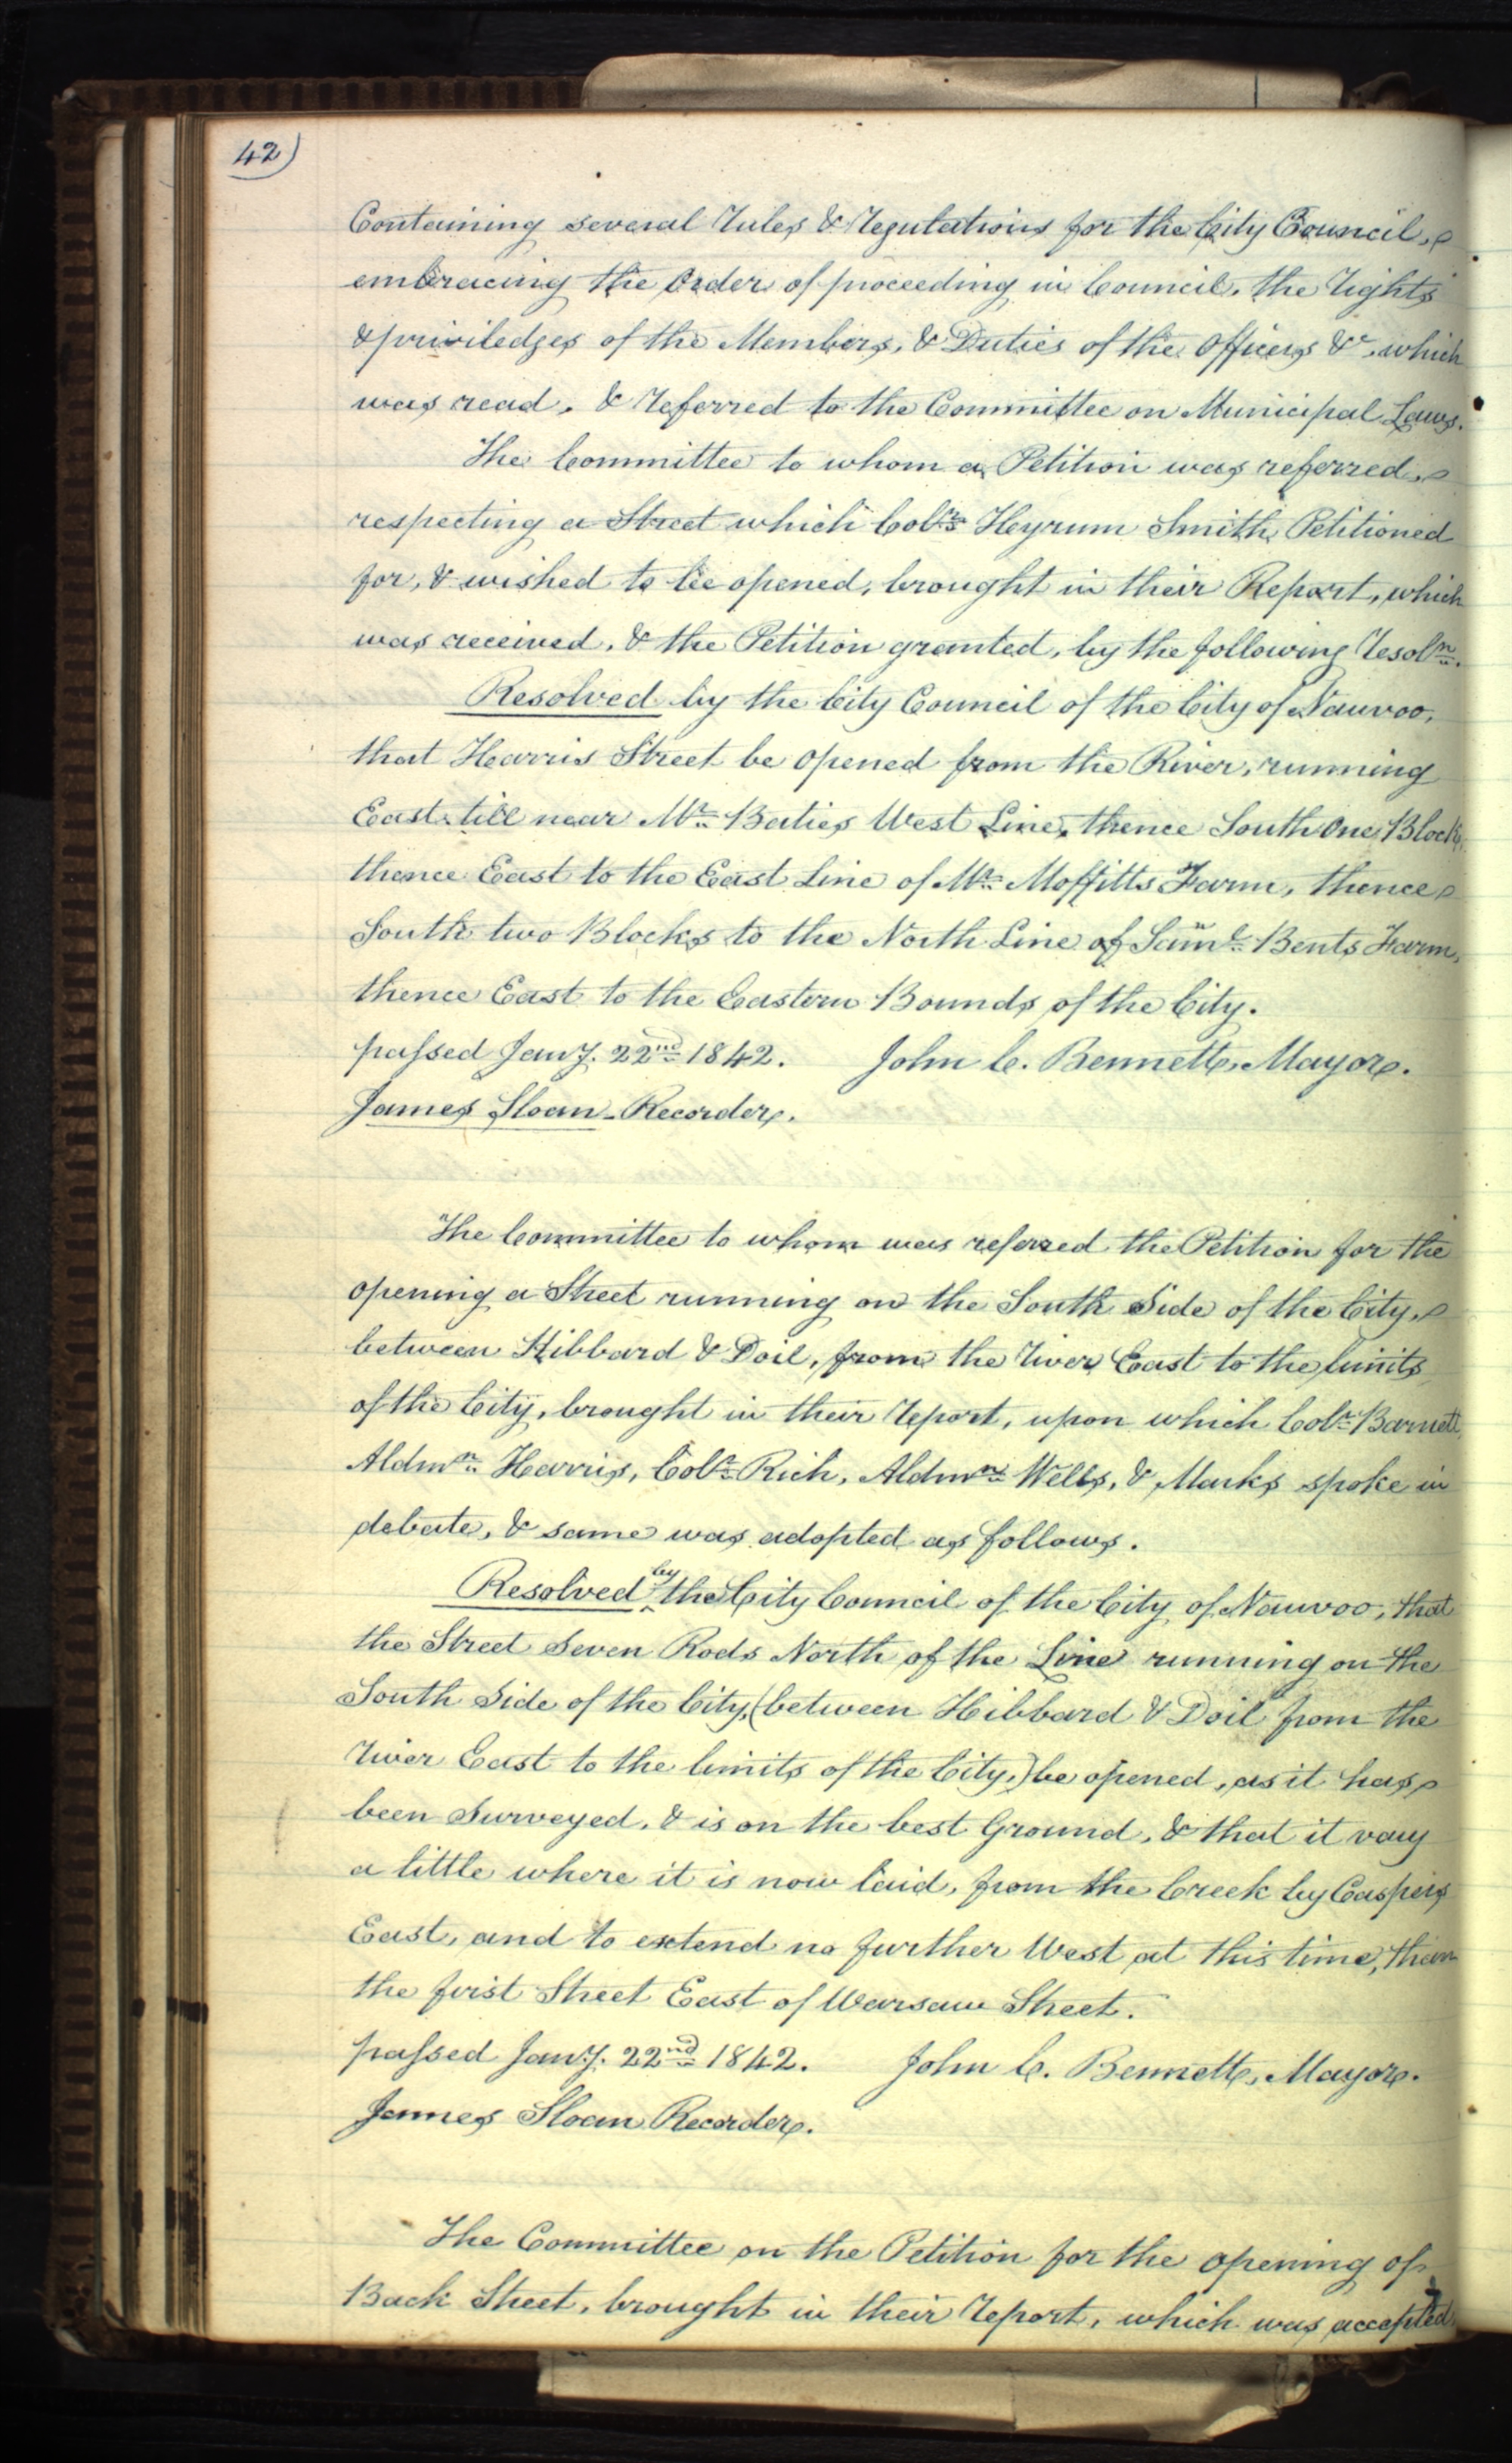 42)
Containing several rules & regulations for the City Council,
embracing the Order of proceeding in Council, the rights
& priviledges of the Members, & Duties of the Officers &c. which
was read, & referred to the Committee on Municipal Laws.
The Committee to whom a Petition was referred,
respecting a Street which Colr. Heyrum Smith, Petitioned
for, & wished to be opened, brought in their Report, which
was received, & the Petition granted, by the following resoln.
Resolved by the City Council of the City of Nauvoo,
that Harris Street be opened from the River, running
East till near Mr. Baties West Line, thence South One Block,
thence East to the East Line of Mr. Moffitts Farm, thence
South two Blocks to the North Line of Saml. Bents Farm,
thence East to the Eastern Bounds of the City.
passed Jany. 22nd 1842. John C. Bennett, Mayor.
James Sloan Recorder.
The Committee to whom was referred the Petition for the
opening a Street running on the South Side of the City,
between Hibbard & Doil, from the river East to the limits
of the City, brought in their report, upon which Colr. Barnett,
Aldmn. Harris, Colr. Rich, Aldmn. Wells, & Marks spoke in
debate, & same was adopted as follows.
Resolved by the City Council of the City of Nauvoo, that
the Street Seven Rods North of the Line running on the
South Side of the City, (between Hibbard & Doil from the
river East to the limits of the City,) be opened, as it has
been Surveyed, & is on the best Ground, & that it vary
a little where it is now laid, from the Creek by Caspers
East, and to extend no further West at this time, than
the first Street East of Warsaw Street.
passed Jany. 22nd 1842. John C. Bennett, Mayor.
James Sloan Recorder.
The Committee on the Petition for the opening of
Back Street, brought in their report, which was accepted